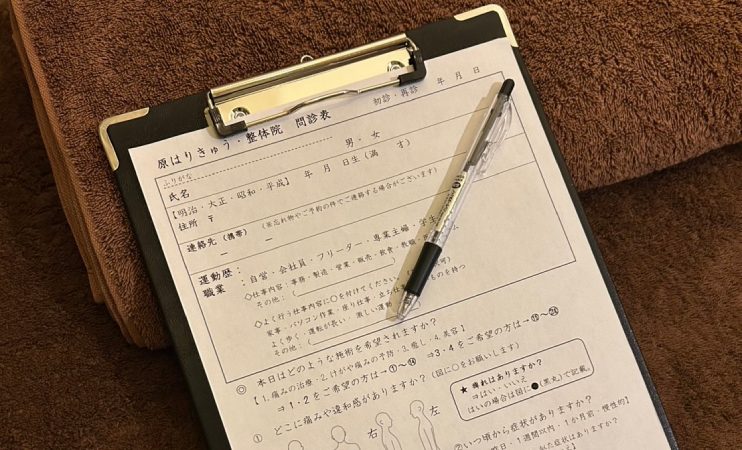 原はりきゅう・整体院 問診表
初診・再診 年 月 日
ふりがな
氏名 男・女
【明治・大正・昭和・平成】 年 月 日生(満 才)
住所 〒
連絡先(携帯) (※忘れ物やご予約の件でご連絡する場合がございます)
運動歴:
職業 :自営・会社員・フリーター・専業主婦・学生
◇仕事内容:事務・製造・営業・販売・飲食・教職
その他:( )
◇よく行う仕事内容に○を付けてください 可)
家事・パソコン作業・座り仕事・立ち仕 ものを持つ
よく歩く・運転が長い 激しい運動
その他:( )
◎ 本日はどのような施術を希望されますか?
【1.痛みの治療・2.けがや痛みの予防・3.癒し・4.美容】
⇒1・2をご希望の方は→①~⑭ ⇒3・4をご希望の方は→
① どこに痛みや違和感がありますか?(図に○をお願いします)
右 左
★ 痺れはありますか?
⇒はい・いいえ
はいの場合は図に●(黒丸)で記載。
②いつ頃から症状がありますか?
昨日・1週間以内・1か月前・慢性的】
似た症状はありますか?